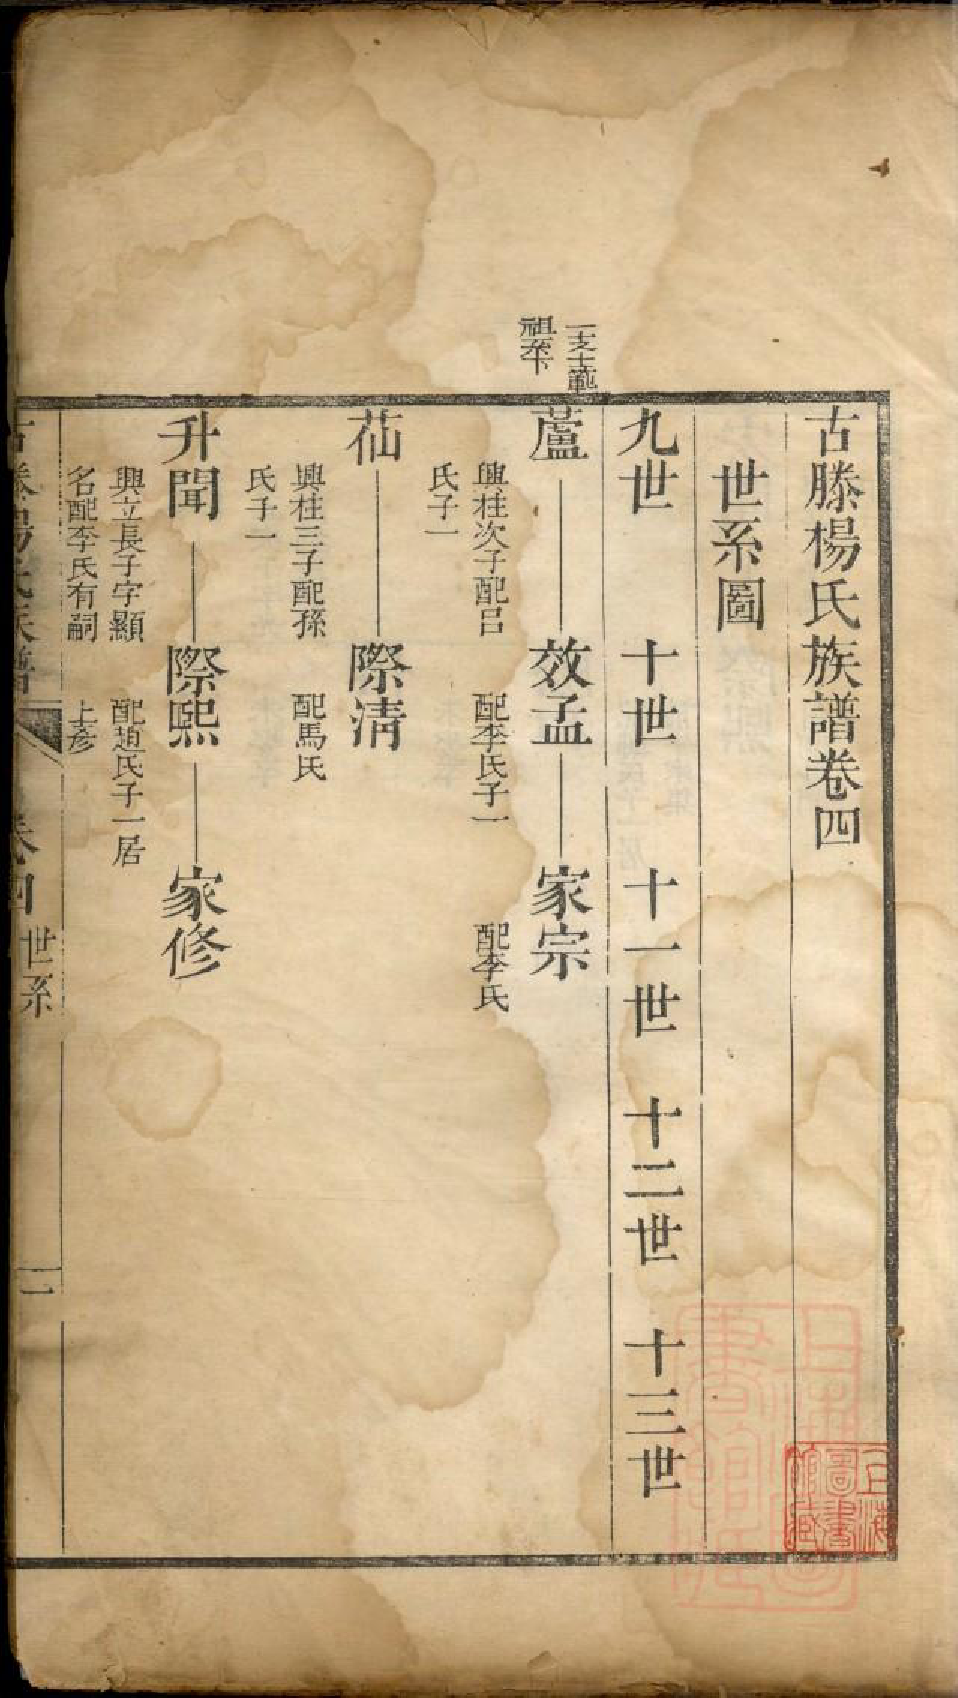 古滕楊氏族譜卷四
世系圖
九世 十世 十一世 十二世 十三世
一支士範
祖奈下
蘆 效孟 家宗
興柱次子配呂 配李氏子一 配李氏
氏子一
仙 際清
興柱三子配孫 配馬氏
氏子一
升聞 際熙 家修
興立長子字顯 配趙氏子一居
名配李氏有嗣 上彥
古滕楊氏族譜 卷四 世系 一
上海
圖書
館藏